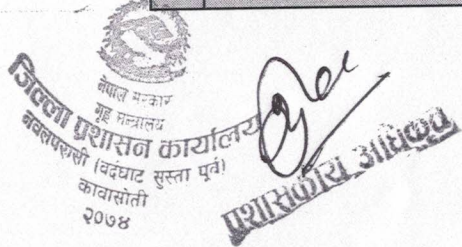 नेपाल सरकार
गृह मन्त्रालय
जिल्ला प्रशासन कार्यालय
नवलपरासी (बर्दघाट सुस्ता पूर्व)
कावासोती
२०७४
प्रशासकीय अधिकृत